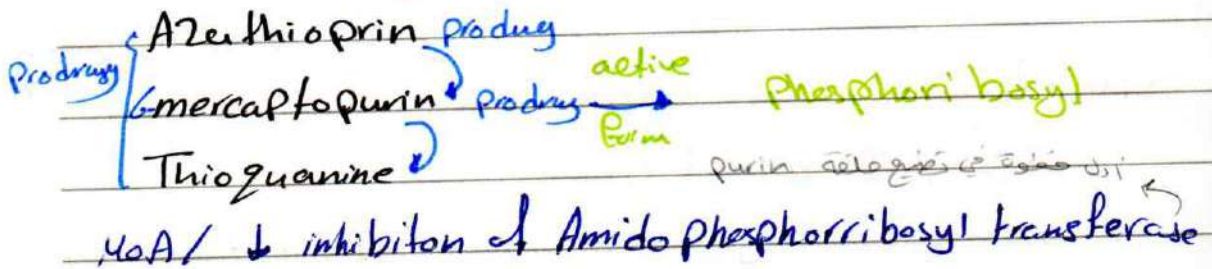 Azathioprin produg
Prodrug 6-mercaptopurin prodrug active form Phosphoribosyl
Thioguanine
أول خطوة في تصنيع حلقة purin
MOA/ ↓ inhibiton of Amidophosphorribosyl transferase